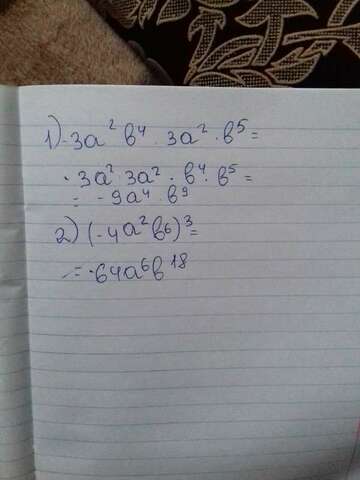 1) -3a² b⁴ · 3a² · b⁵ =
- 3a² · 3a² · b⁴ · b⁵ =
= - 9a⁴ · b⁹
2) (-4a²b⁶)³ =
= -64a⁶b¹⁸